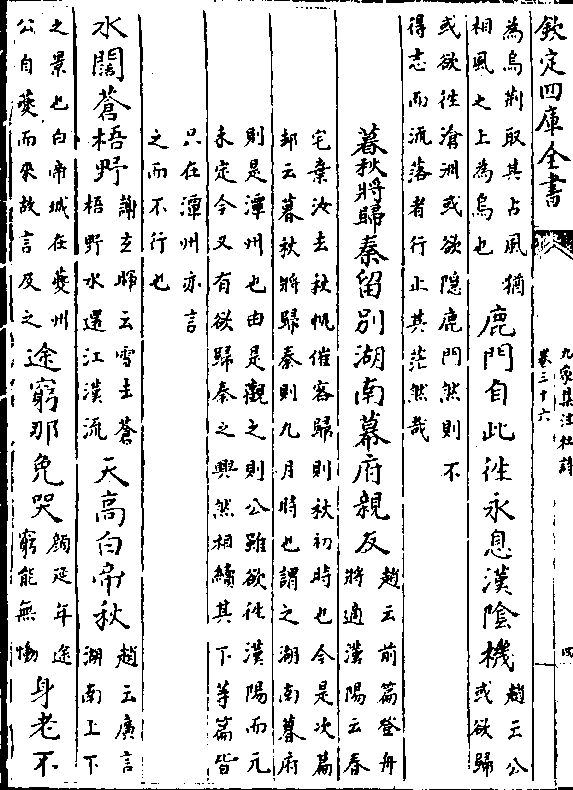 欽定四庫全書
九家集注杜詩
卷三十六
四
為烏荆取其占風猶
相風之上為烏也
鹿門自此往永息漢陰機
趙云公
或欲歸
或欲往滄洲或欲隠鹿門然則不
得志而流落者行止其茫然哉
暮秋將歸秦留別湖南幕府親友
趙云前篇登舟
將適漢陽云春
宅棄汝去秋帆催客歸則秋初時也今是次篇
却云暮秋將歸秦則九月時也謂之湖南幕府
則是潭州也由是觀之則公雖欲往漢陽而元
未定今又有欲歸秦之興然相續其下等篇皆
只在潭州亦言
之而不行也
水闊蒼梧野
謝玄暉云雲去蒼
梧野水還江漢流
天高白帝秋
趙云廣言
湖南上下
之景也白帝城在䕫州
公自䕫而來故言及之
途窮那免哭
顔延年途
窮能無慟
身老不